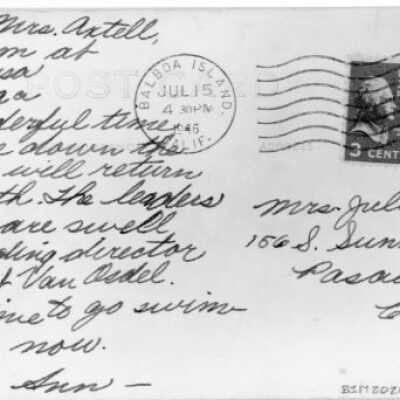 Mrs. Axtell,
m at
sa
ga
derful time,
e down the
will return
th. The leaders
are swell
ding director
Van Osdel.
ime to go swim
now.
Ann —
POST CARD
BALBOA ISLAND,
JUL 15
4 30 PM
1946
CALIF.
3 CENT
ADDRESS
Mrs. Jul
156 S. Sun
Pasa
C